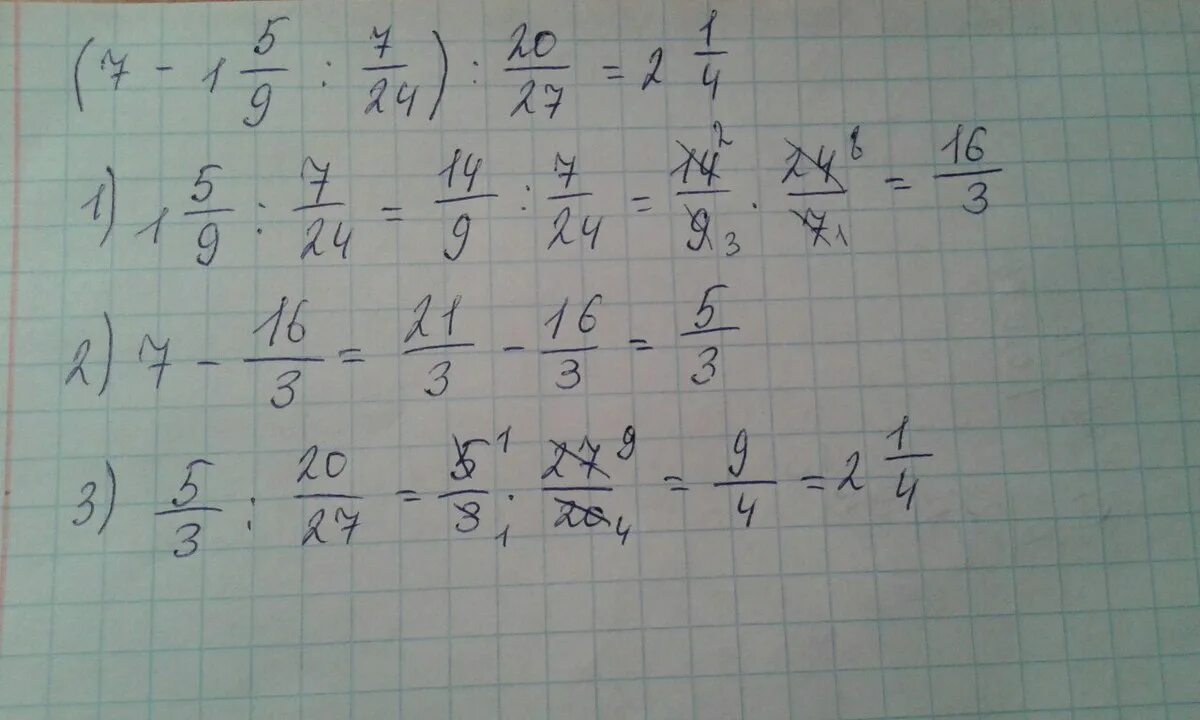 (7 - 1 5/9 : 7/24) : 20/27 = 2 1/4
1) 1 5/9 : 7/24 = 14/9 : 7/24 = 14 2/9 3 · 24 8/7 1 = 16/3
2) 7 - 16/3 = 21/3 - 16/3 = 5/3
3) 5/3 : 20/27 = 5 1/3 1 · 27 9/20 4 = 9/4 = 2 1/4